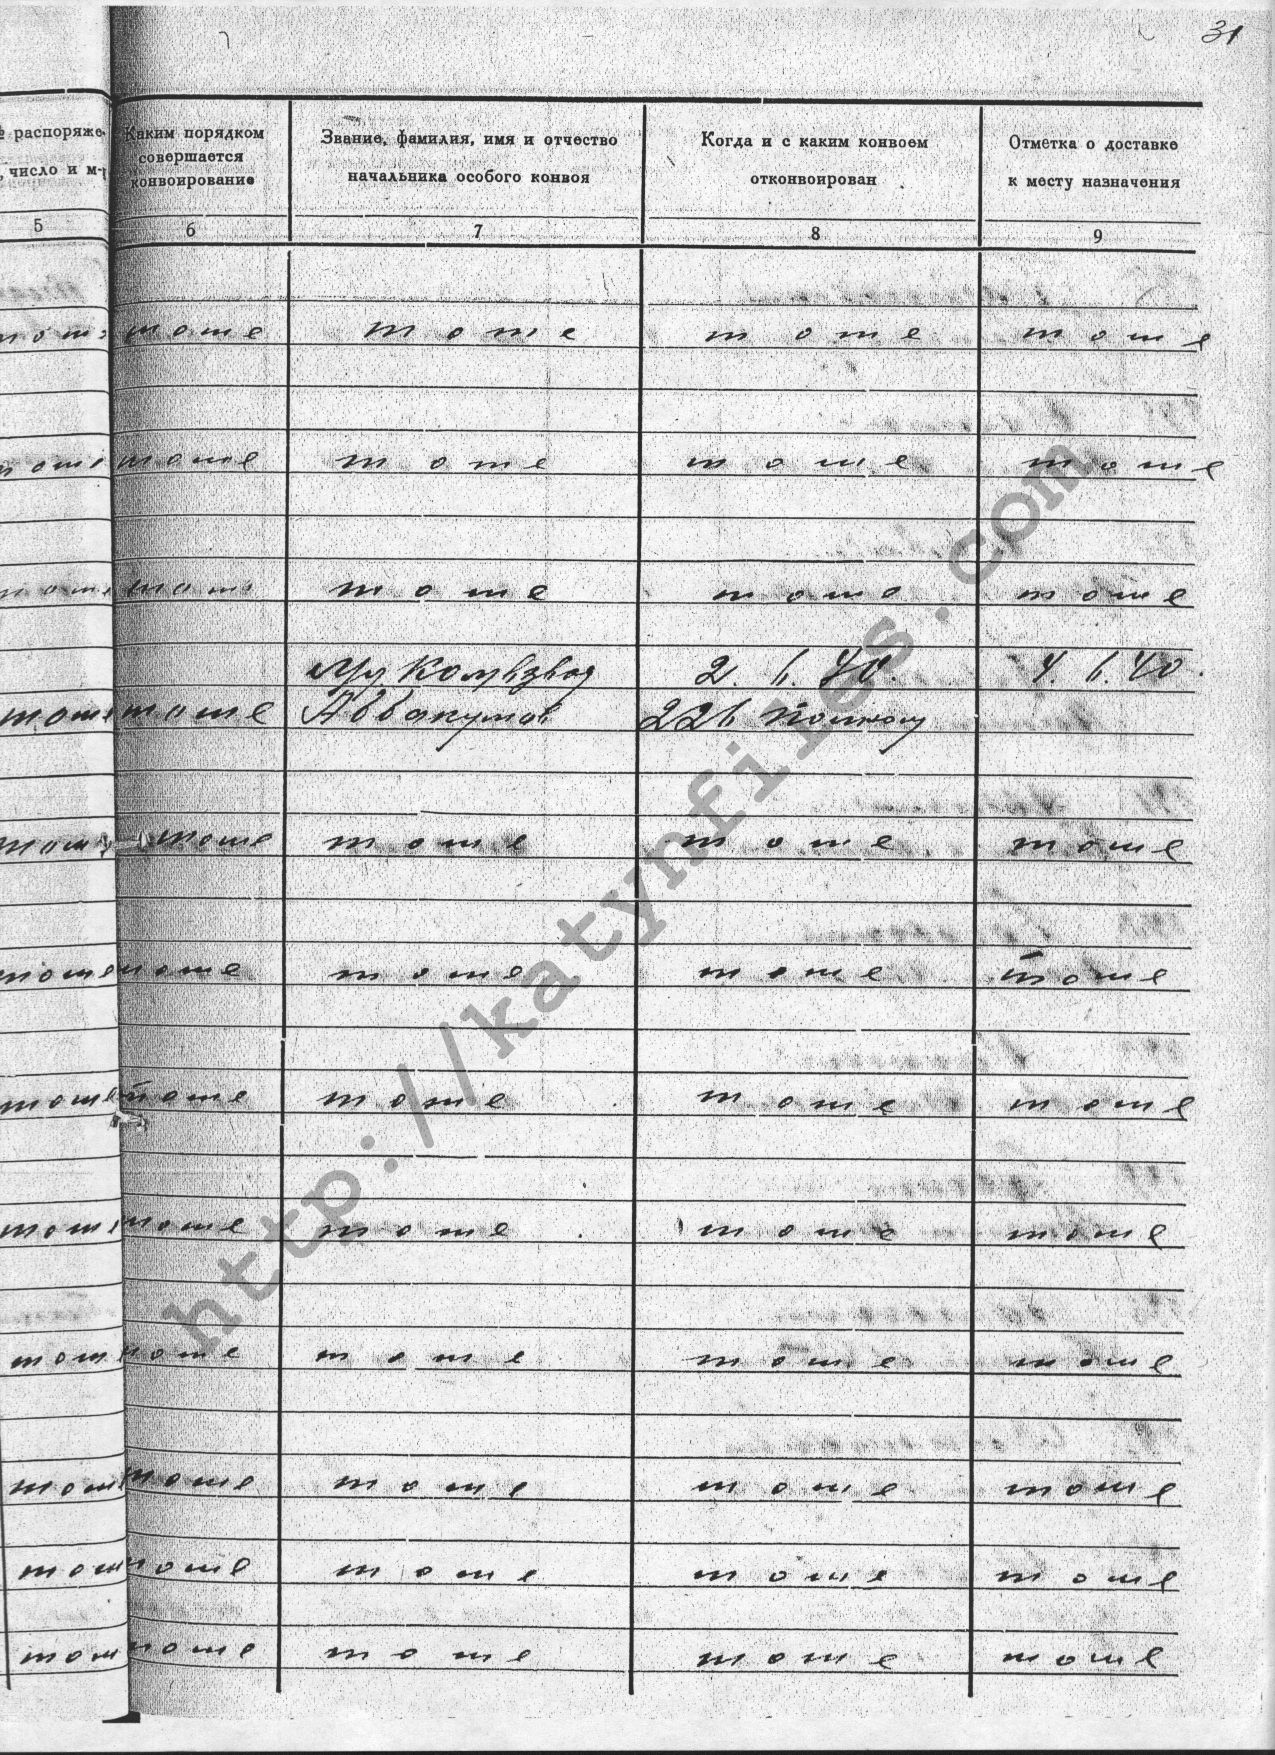 31
№ распоряже- Каким порядком Звание, фамилия, имя и отчество Когда и с каким конвоем Отметка о доставке
, число и м- совершается начальника особого конвоя отконвоирован к месту назначения
конвоирование
5 6 7 8 9
тоже тоже тоже тоже тоже
тоже тоже тоже тоже тоже
тоже тоже тоже тоже тоже
Мл Комвзвод 2. 6. 40. 4. 6. 40.
тоже тоже Аввакумов 226 полком
тоже тоже тоже тоже тоже
тоже тоже тоже тоже тоже
тоже тоже тоже тоже тоже
тоже тоже тоже тоже тоже
тоже тоже тоже тоже тоже
тоже тоже тоже тоже тоже
тоже тоже тоже тоже тоже
тоже тоже тоже тоже тоже
http://katynfiles.com